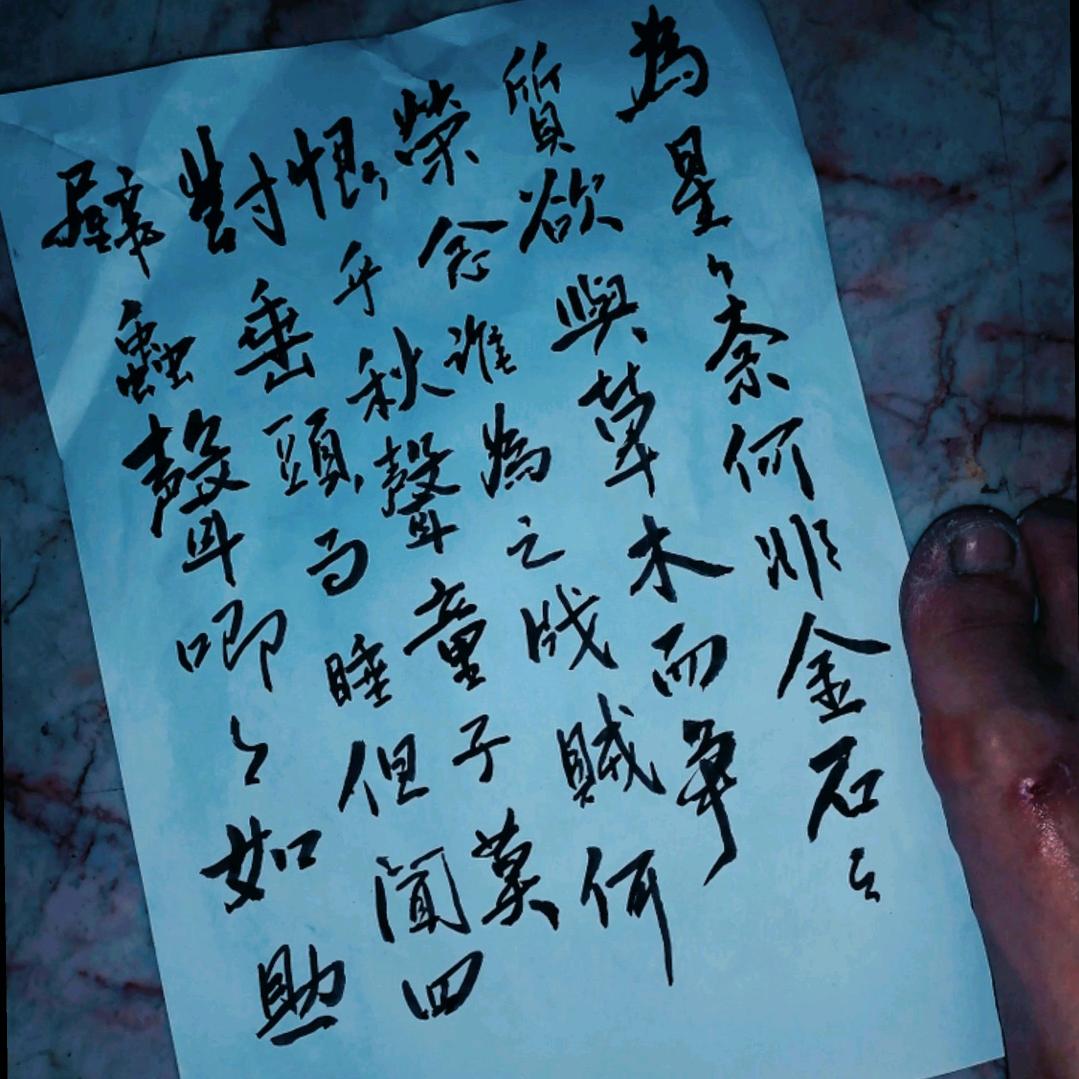 為星々奈何非金石之
質欲與草木而爭
榮念誰為之戕賊何
恨乎秋聲童子莫
對垂頭而睡但聞四
壁蟲聲唧々如助